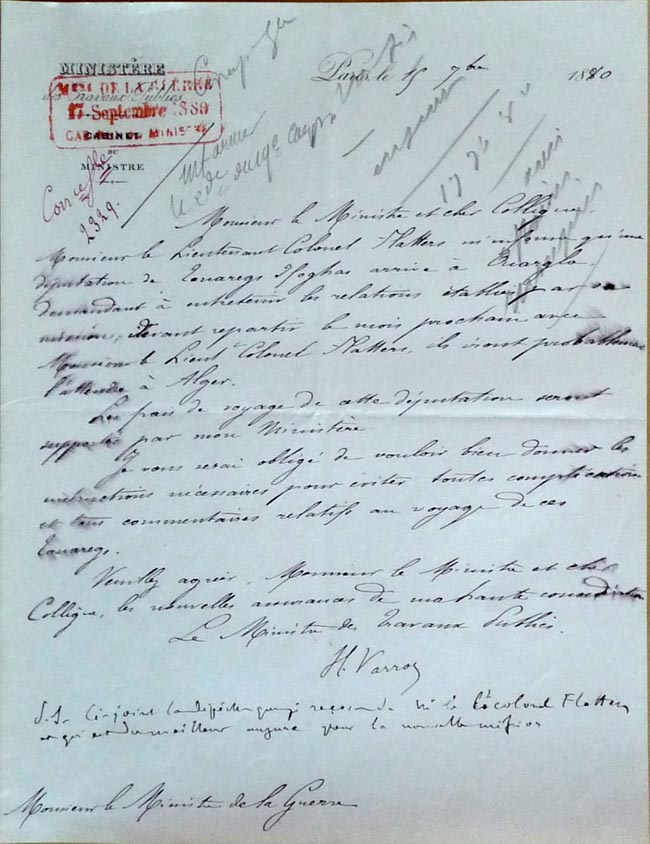 MINISTÈRE
des Travaux Publics
Mère DE LA GUERRE
17 Septembre 1880
CABINET
MINISTRE
DU
MINISTRE
2329.
Paris, le 15 7bre 1880
informer
le
du 19e Corps
17 7bre
Monsieur le Ministre et cher Collègue,
Monsieur le Lieutenant Colonel Flatters m'informe qu'une
députation de Touaregs Ifoghas arrive à Ouargla
demandant à entretenir les relations établies par sa
mission, devant repartir le mois prochain avec
Monsieur le Lieut. Colonel Flatters, ils iront probablement
l'attendre à Alger.
Les frais de voyage de cette députation seront
supportés par mon Ministère
Je vous serai obligé de vouloir bien donner les
instructions nécessaires pour éviter toutes complications
et tous commentaires relatifs au voyage de ces
Touaregs.
Veuillez agréer, Monsieur le Ministre et cher
Collègue, les nouvelles assurances de ma haute considération
Le Ministre des Travaux Publics.
H. Varroy
P.S. Ci-joint la dépêche que j'ai reçue de Mr le Lt colonel Flatters
et qui est du meilleur augure pour la nouvelle mission
Monsieur le Ministre de la Guerre